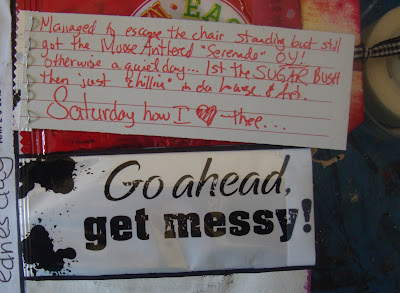 EAS
Managed to escape the chair standing but still
got the Moose Antlered "Serenade" OY!
otherwise a quiet day... 1st the SUGAR BUSH
then just "chillin" in da house & Art.
Saturday how I ♥ thee...
Go ahead,
get messy!